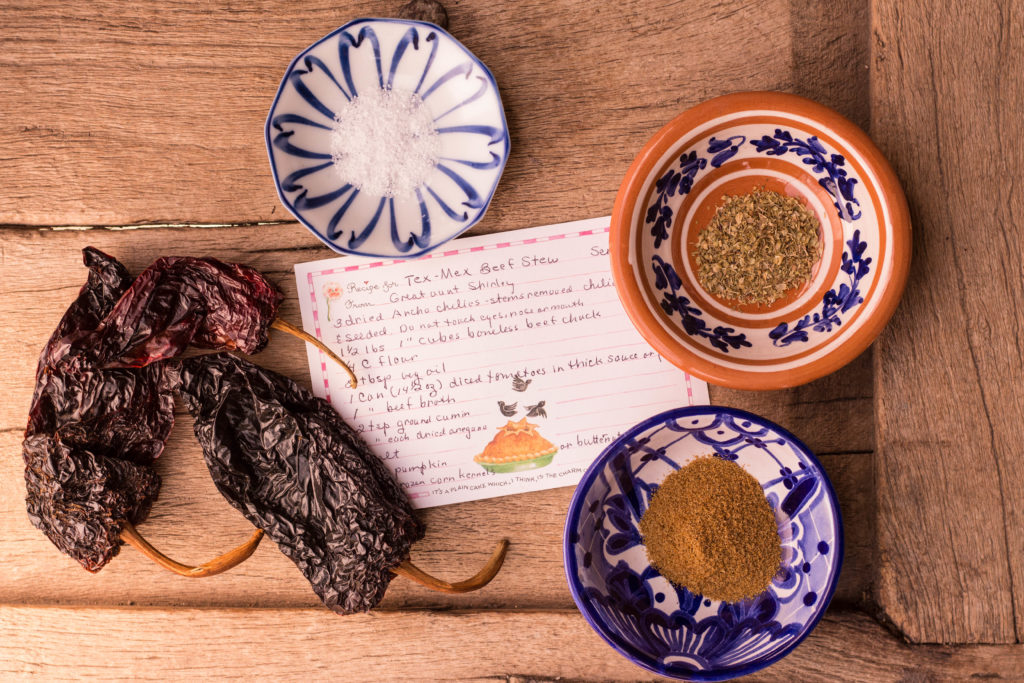 Recipe for Tex-Mex Beef Stew
From Great aunt Shirley
3 dried Ancho chilies - stems removed
& seeded. Do not touch eyes, nose or mouth
1 1/2 lbs 1" cubes boneless beef chuck
C flour
tbsp veg oil
1 Can (14 1/2 oz) diced tomatoes in thick sauce or
1 " beef broth
2 tsp ground cumin
" each dried oregano
pumpkin or
corn kernels
IT'S A PLAIN CAKE, WHICH, I THINK, IS THE CHARM